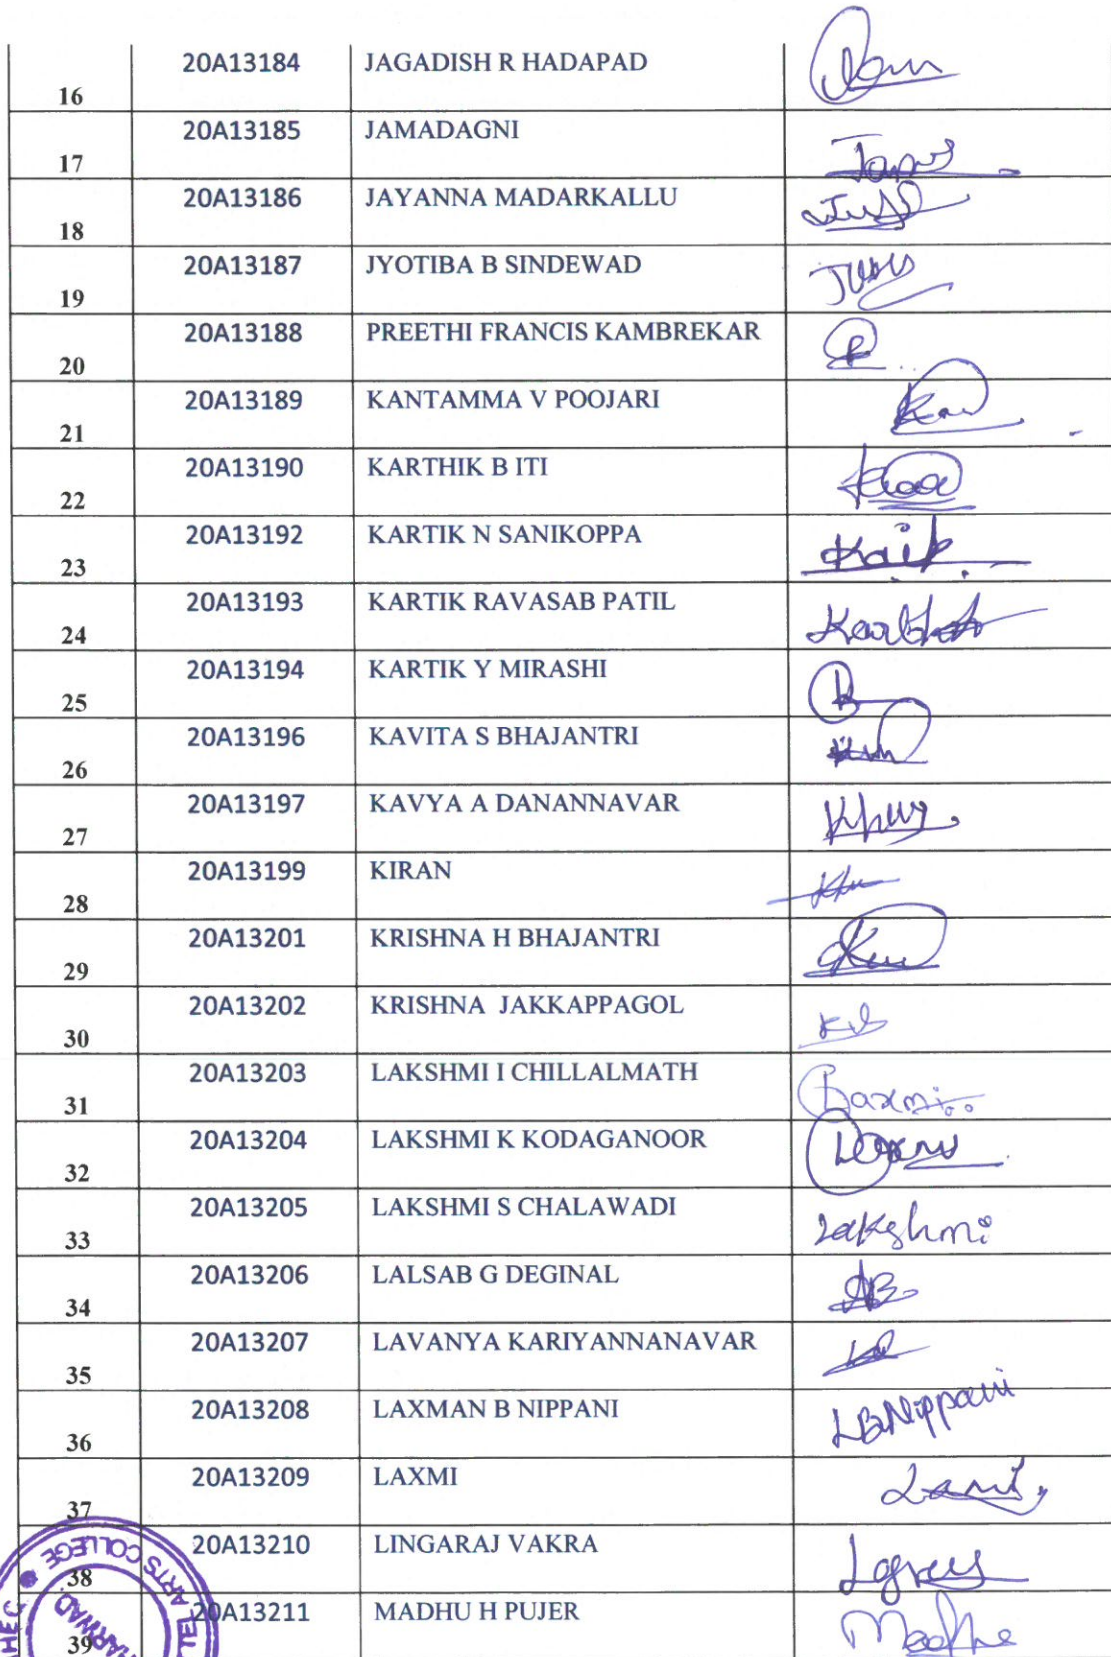 20A13184 JAGADISH R HADAPAD
16
20A13185 JAMADAGNI
17
20A13186 JAYANNA MADARKALLU
18
20A13187 JYOTIBA B SINDEWAD
19
20A13188 PREETHI FRANCIS KAMBREKAR
20
20A13189 KANTAMMA V POOJARI
21
20A13190 KARTHIK B ITI
22
20A13192 KARTIK N SANIKOPPA
23
20A13193 KARTIK RAVASAB PATIL
24
20A13194 KARTIK Y MIRASHI
25
20A13196 KAVITA S BHAJANTRI
26
20A13197 KAVYA A DANANNAVAR
27
20A13199 KIRAN
28
20A13201 KRISHNA H BHAJANTRI
29
20A13202 KRISHNA JAKKAPPAGOL
30
20A13203 LAKSHMI I CHILLALMATH
31
20A13204 LAKSHMI K KODAGANOOR
32
20A13205 LAKSHMI S CHALAWADI
33 Lakshmi
20A13206 LALSAB G DEGINAL
34
20A13207 LAVANYA KARIYANNANAVAR
35
20A13208 LAXMAN B NIPPANI LBNippani
36
20A13209 LAXMI
37
20A13210 LINGARAJ VAKRA
38
20A13211 MADHU H PUJER
39
ARTS COLLEGE